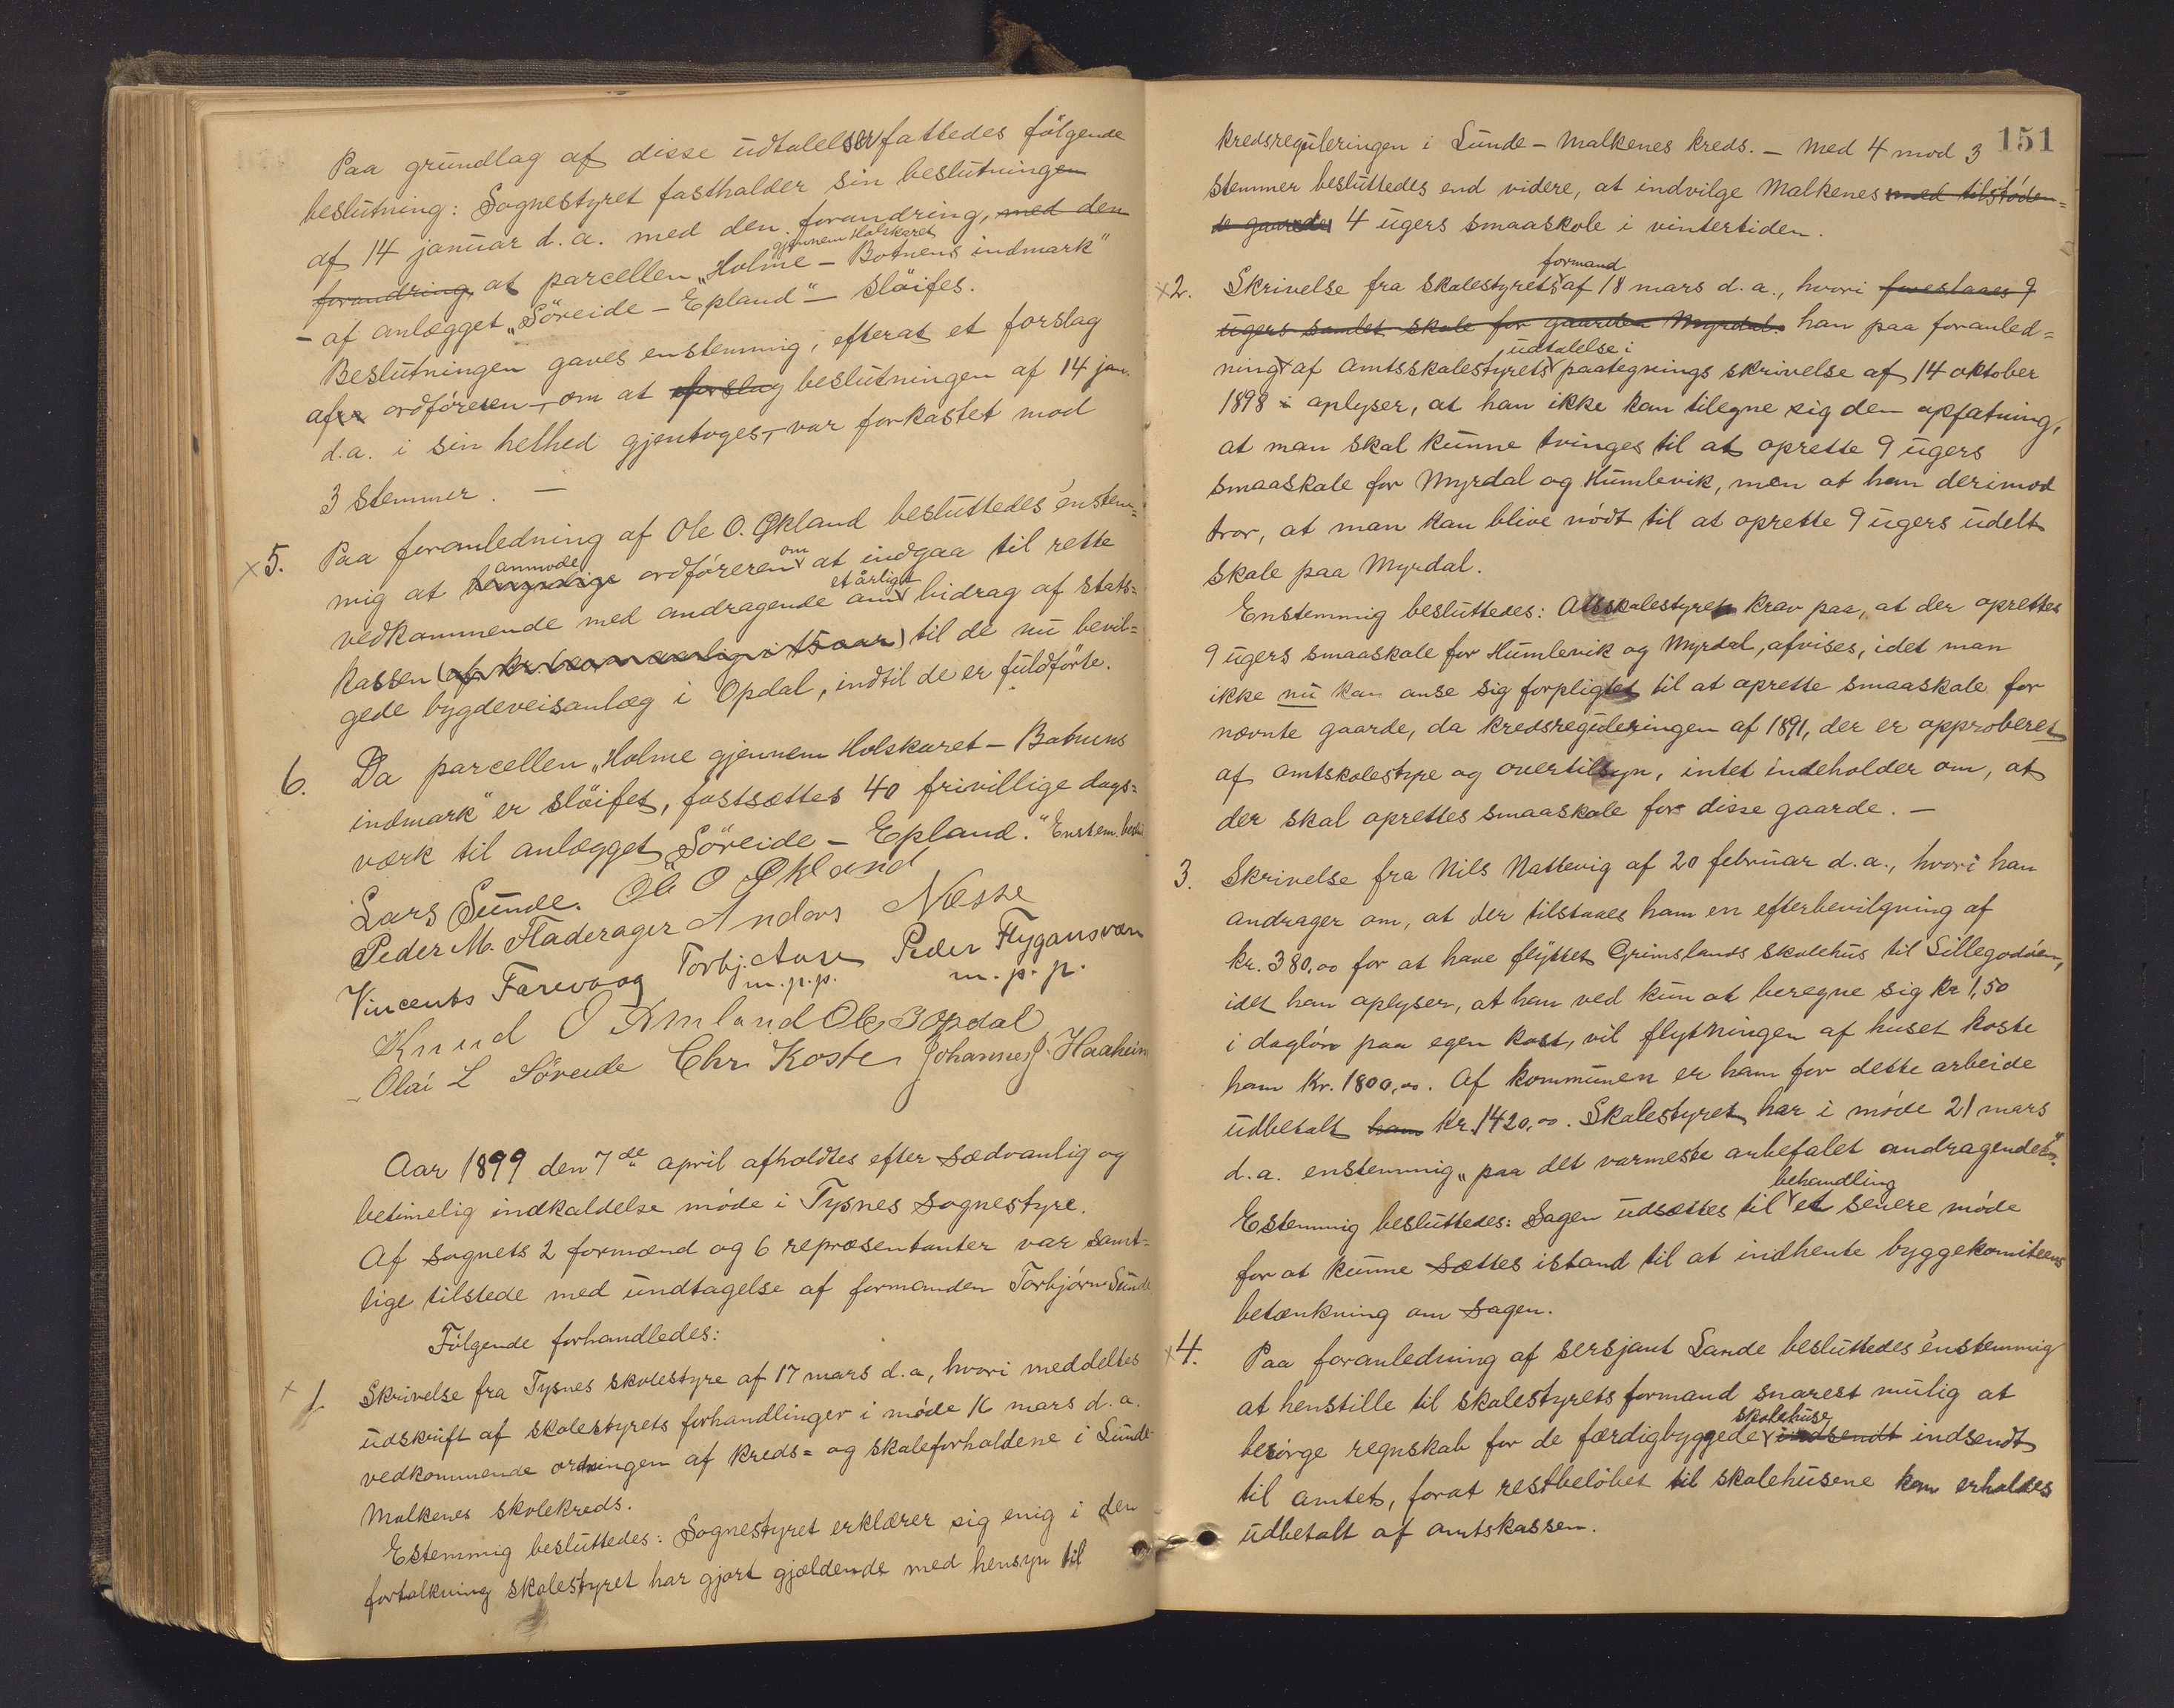 Paa grundlag af disse udtalelser fattedes følgende
beslutning: Sognestyret fastholder sin beslutningen
af 14 januar d.a. med den forandring, med den
forandring, at parcellen „Holme - gjennem Holskaret Botnens indmark"
- af anlægget „Söreide - Epland" - slöifes.
Beslutningen gaves enstemmig, efterat et forslag
af ordföreren -, om at forslag beslutningen af 14 jan.
d.a. i sin helhed gjentoges, - var forkastet mod
3 stemmer. -
x 5. Paa foranledning af Ole O. Økland besluttedes enstem=
mig at bemyndige anmode ordföreren om at indgaa til rette
vedkommende med andragende om et årligt bidrag af stats=
kassen til de nu bevil=
gede bygdeveisanlæg i Opdal, indtil de er fuldförte.
6. Da parcellen „Holme gjennem Holskaret - Botnens
indmark" er slöifet, fastsættes 40 frivillige dags=
værk til anlægget „Söreide - Epland." Enstem. beslu
Lars Sunde. Ole O Økland
Peder M. Fladerager Anders Næsse
Vincents Farevaag Torbj. Aase Peder Flygansvær
m.p.p. m.p.p.
Knud O Amland Ole B Opdal
Olai L Söreide Chr Koste Johannes J. Haaheim
Aar 1899 den 7de april afholdtes efter sædvanlig og
betimelig indkaldelse möde i Tysnes sognestyre.
Af sognets 2 formænd og 6 repræsentanter var samt=
lige tilstede med undtagelse af formanden Torbjörn Sunde
Fölgende forhandledes:
x 1. Skrivelse fra Tysnes skolestyre af 17 mars d.a., hvori meddeltes
udskrift af skolestyrets forhandlinger i möde 16 mars d.a.
vedkommende ordningen af kreds= og skoleforholdene i Lunde-
Malkenes skolekreds.
Estemmig besluttedes: Sognestyret erklærer sig enig i den
fortolkning skolestyret har gjort gjældende med hensyn til
151
kredsreguleringen i Lunde - Malkenes kreds. - Med 4 mod 3
stemmer besluttedes end videre, at indvilge Malkenes med tilstöden=
de gaarder 4 ugers smaaskole i vintertiden.
x 2. Skrivelse fra skolestyrets formand af 18 mars d.a., hvori foreslaaes 9
ugers samlet skole for gaarden Myrdal. han paa foranled=
ning af amtsskolestyrets udtalelse i paategnings skrivelse af 14 oktober
1898 i oplyser, at han ikke kan tilegne sig den opfatning,
at man skal kunne tvinges til at oprette 9 ugers
smaaskole for Myrdal og Humlevik, men at han derimod
tror, at man kan blive nödt til at oprette 9 ugers udelt
skole paa Myrdal.
Enstemmig besluttedes: Atsskolestyrets krav paa, at der oprettes
9 ugers smaaskole for Humlevik og Myrdal, afvises, idet man
ikke nu kan anse sig forpligtet til at oprette smaaskole for
nævnte gaarde, da kredsreguleringen af 1891, der er approberet
af amtskolestyre og overtilsyn, intet indeholder om, at
der skal oprettes smaaskole for disse gaarde. -
3. Skrivelse fra Nils Nattevig af 20 februar d.a., hvori han
andrager om, at der tilstaaes ham en efterbevilgning af
kr. 380,00 for at have flyttet Grimslands skolehus til Sillegodöen,
idet han oplyser, at han ved kun at beregne sig kr 1,50
i daglön paa egen kost, vil flytningen af huset koste
ham kr. 1800,00. Af kommunen er ham for dette arbeide
udbetalt ham kr. 1420,00. Skolestyret har i möde 21 mars
d.a. enstemmig „paa det varmeste anbefalet andragendet".
Estemmig besluttedes: Sagen udsættes til behandling et senere möde
for at kunne sættes istand til at indhente byggekomiteens
betænkning om sagen.
x 4. Paa foranledning af sersjant Lande besluttedes enstemmig
at henstille til skolestyrets formand snarest mulig at
besörge regnskab for de færdigbyggede skolehuse indsendt indsendt
til amtet, forat restbelöbet til skolehusene kan erholdes
udbetalt af amtskassen.